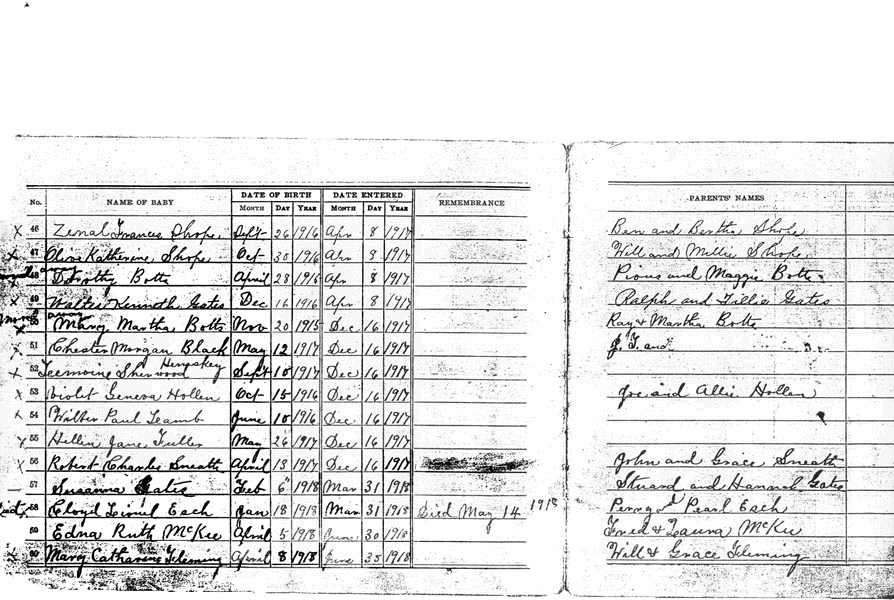 No. NAME OF BABY DATE OF BIRTH DATE ENTERED REMEMBRANCE PARENTS' NAMES
MONTH DAY YEAR MONTH DAY YEAR
X 46 Zenal Frances Shope Sept 26 1916 Apr 8 1917 Ben and Bertha Shope
X 47 Olive Katherine Shope Oct 30 1916 Apr 8 1917 Will and Millie Shope
48 Dorothy Botts April 28 1916 Apr 8 1917 Pious and Maggie Botts
X 49 Walter Kenneth Gates Dec 16 1916 Apr 8 1917 Ralph and Tillie Gates
moved away
50 Mary Martha Botts Nov 20 1915 Dec 16 1917 Ray & Martha Botts
X 51 Chester Morgan Black May 12 1917 Dec 16 1917 J. T. and
X 52 Sherwood Sept 10 1917 Dec 16 1917
X 53 Violet Geneva Hollen Oct 15 1916 Dec 16 1917 Joe and Allie Hollen
X 54 Wilber Paul Leamb June 10 1916 Dec 16 1917
X 55 Jane Fuller May 26 1917 Dec 16 1917
X 56 Robert Charles Sneath April 13 1917 Dec 16 1917 John and Grace Sneath
57 Susanna Gates Feb 6 1918 Mar 31 1918 Stuard and Hannah Gates
died 58 Cloyd Lionel Esch Jan 18 1918 Mar 31 1918 Died May 14 1918 Perry and Pearl Esch
59 Edna Ruth McKee April 5 1918 June 30 1918 Fred & Laura McKee
X 60 Mary Catharine Fleming April 8 1918 June 30 1918 Will & Grace Fleming